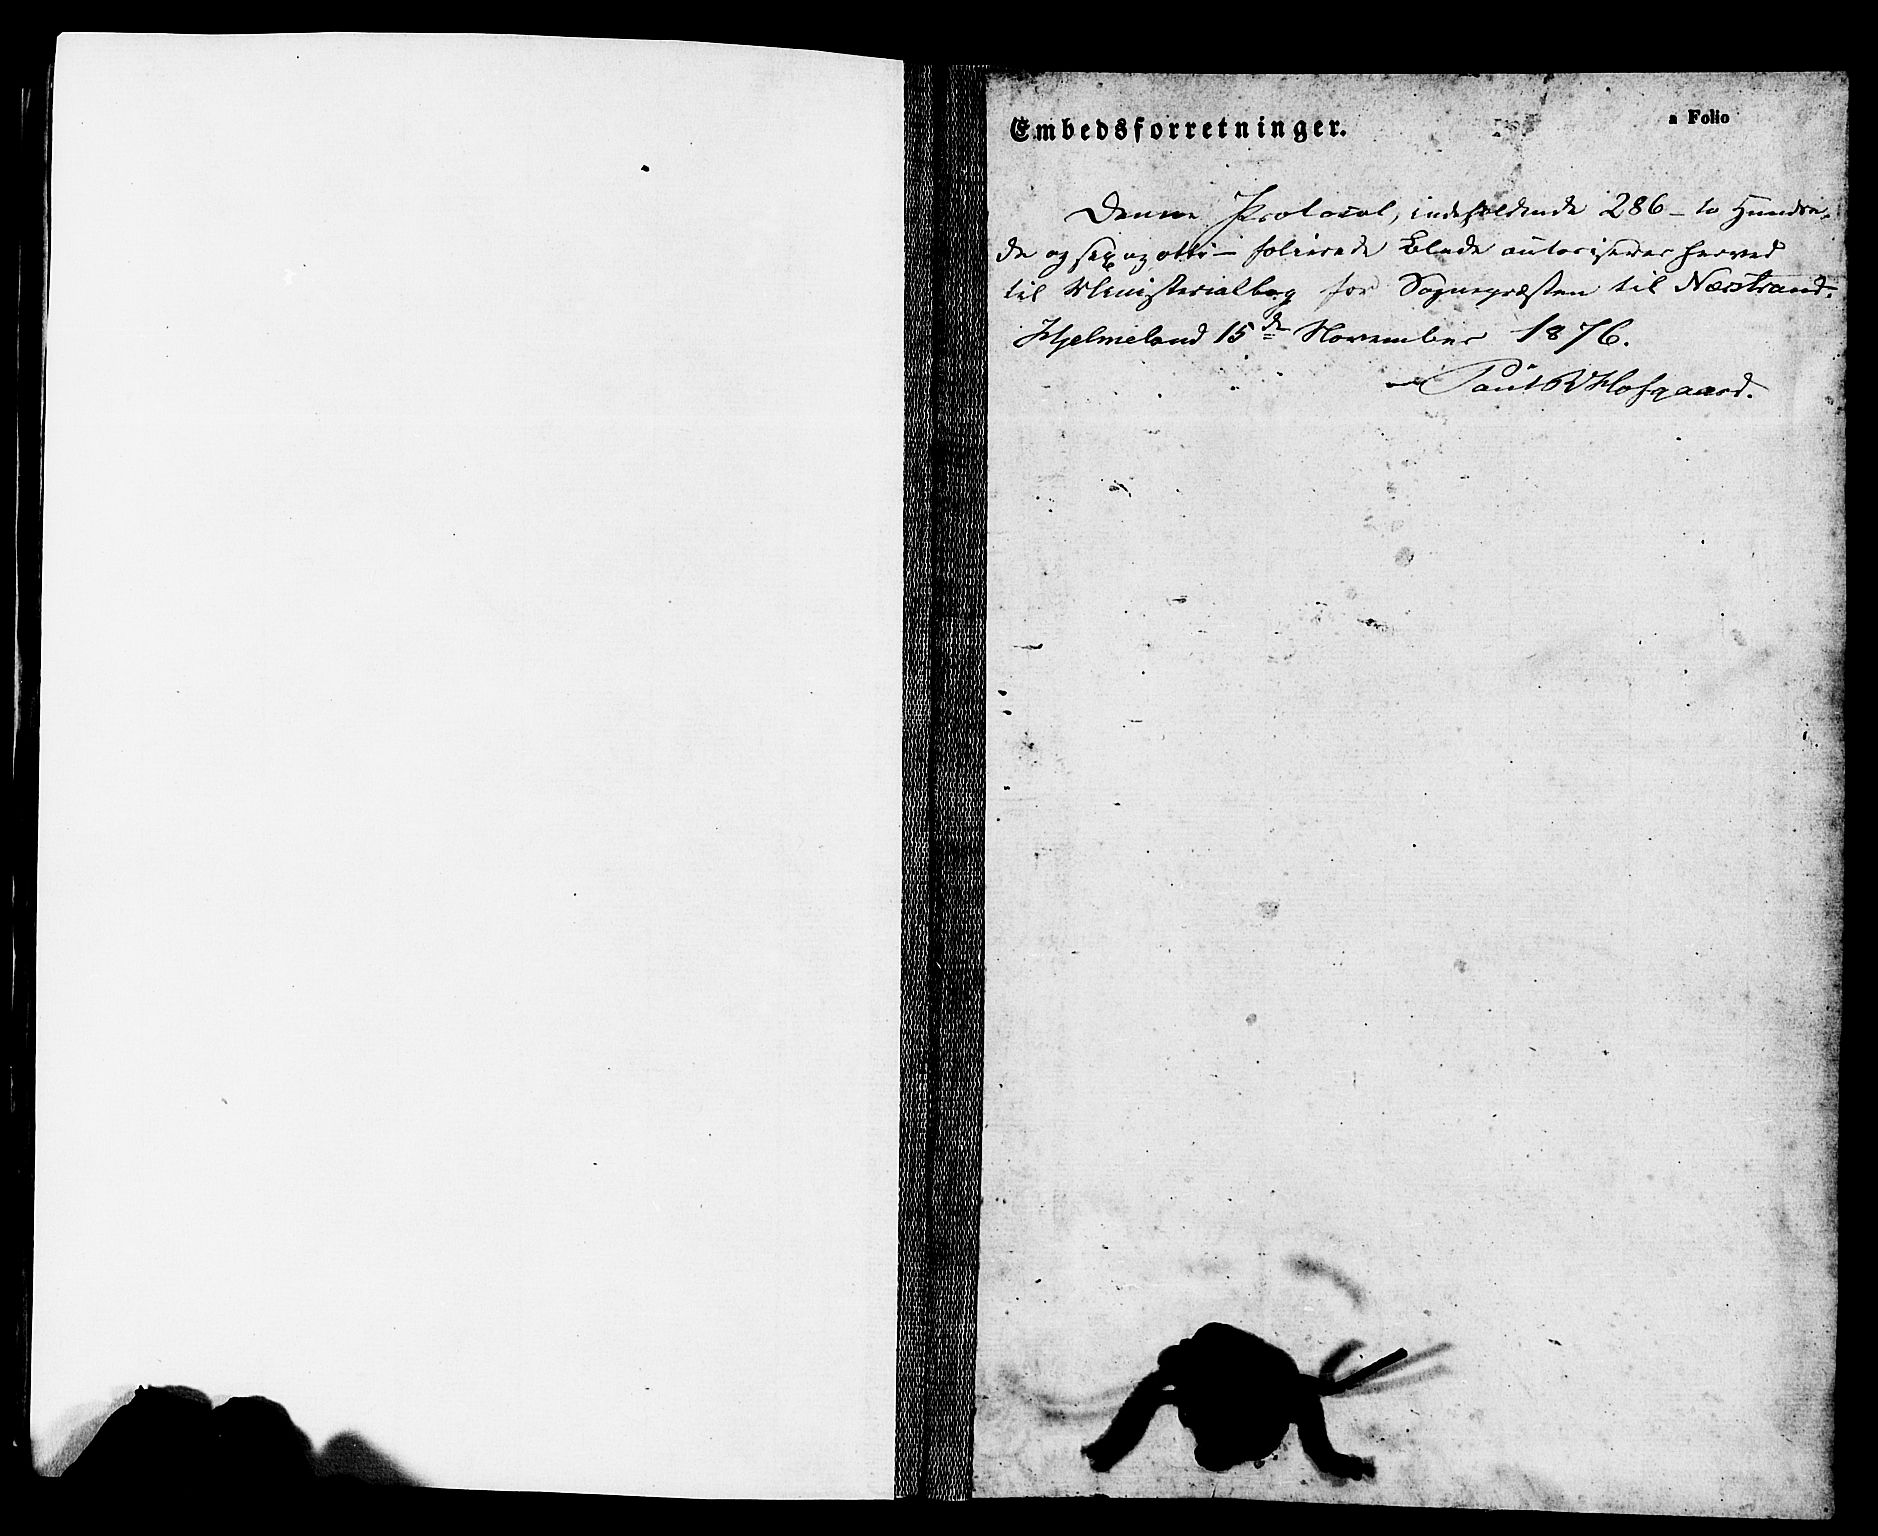 Embedsforretninger.
a Folio
Denne Protocol, indeholdende 286 – to Hundre-
de og sex og otti – folierede Blade autoriseres herved
til Ministerialbog for Sognepræsten til Nærstrand.
Hjelmeland 15de November 1876.
Paul W Hofgaard.